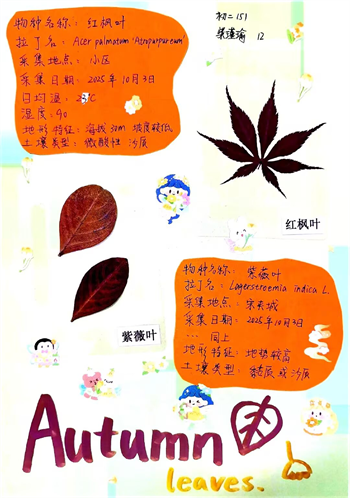 物种名称: 红枫叶
拉丁名: Acer palmatum 'Atropurpureum'
采集地点: 小区
采集日期: 2025年10月3日
日均温: 23℃
湿度: 90
地形特征: 海拔32m 坡度较低
土壤类型: 微酸性 沙质
初二151
12
红枫叶
紫薇叶
物种名称: 紫薇叶
拉丁名: Lagerstreemia indica L.
采集地点: 宋夫城
采集日期: 2025年10月3日
… 同上
地形特征: 地势较高
土壤类型: 黏质或沙质
Autumn
leaves.